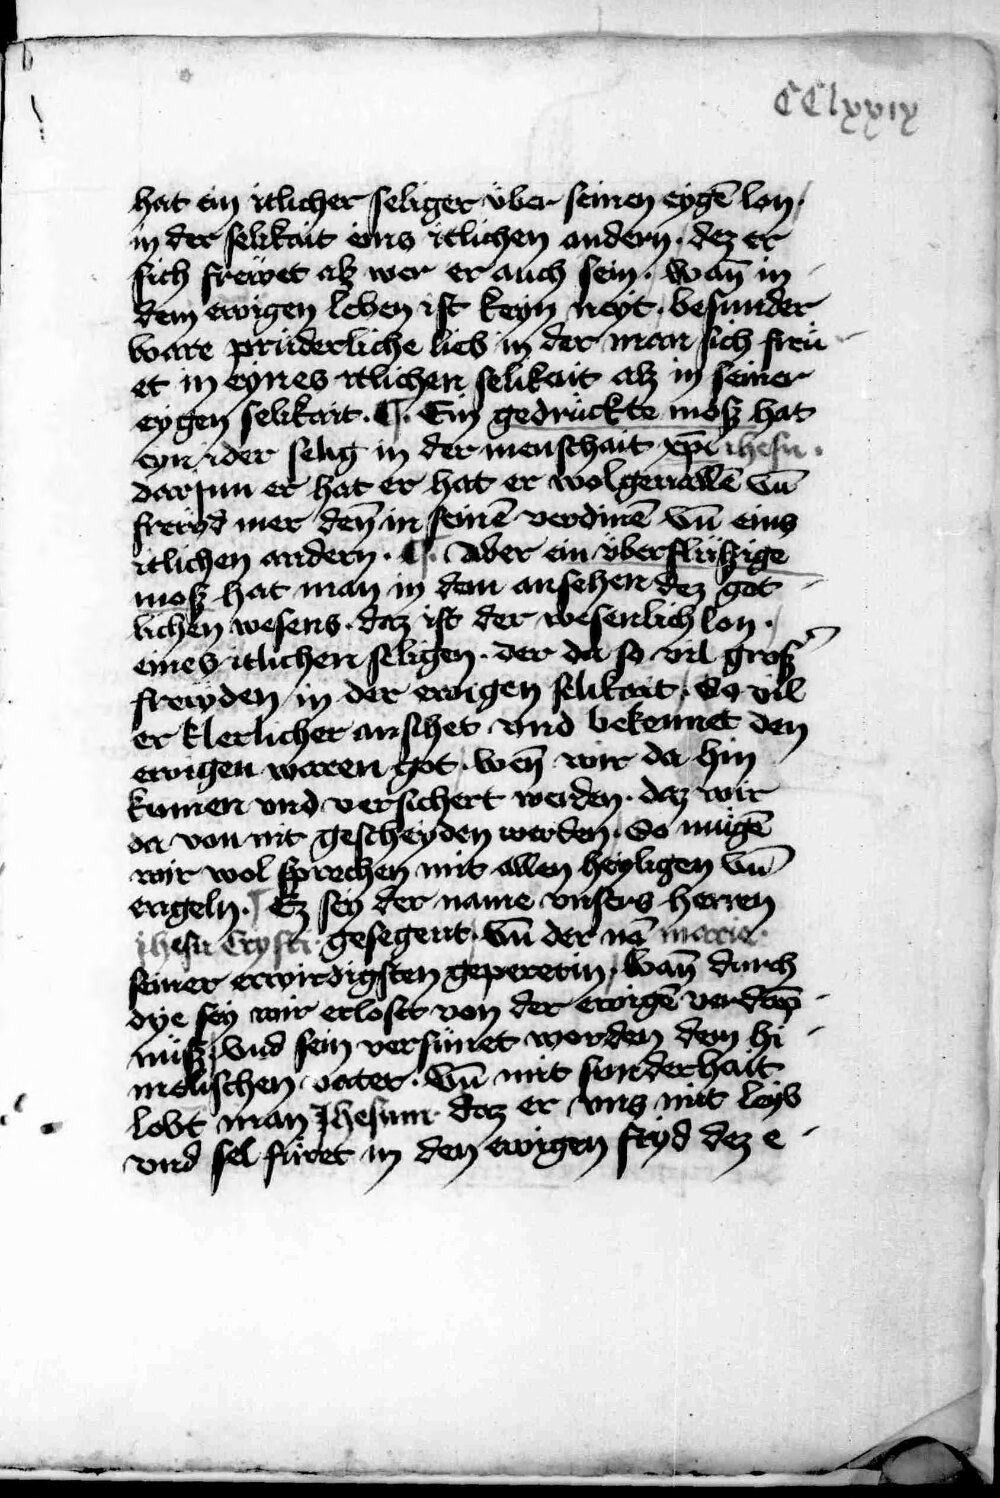 CClxxix
hat ein itlicher seliger über seinen eygē lon
in der selikait eins itlichen andern · dez er
sich frewet alz wer er auch sein · wan̄ in
dem ewigen leben ist keyn neyt · besunder
ware prüderliche lieb in der man sich freü
et in eynes itlichen selikait alz in seiner
eygen selikait · ¶ · Ein gedrückte mosz hat
eyn ider selig in der menschait xp̄i ihesu ·
darjnn er hat er hat er wolgeuallē vn̄
frewd mer den̄ in seinē verdinē vn̄ eins
itlichen andern · ¶ · Aber ein überflüszige
mosz hat man in dem ansehen dez got
lichen wesens · daz ist der wesenlich lon ·
eines itlichen seligen · der da so vil grosz̓
frewden in der ewigen selikait · So vil
er klerlicher ansehet vnd bekennet den
ewigen waren got · wen̄ wir da hin
kumen vnd versichert werden · daz wir
da von nit gescheyden werden · So mügē
wir wol sprechen mit allen heyligen vn̄
engeln · ¶ Ez sey der name vnsers herren
ihesu Crysti · gesegent · vn̄ der nā marie ·
seiner erwirdigsten gepererin · wan̄ durch
dye sey wir erlost von der ewigē verdāp
nüsz · vnd sein versünet worden dem hi
melischen vater · vn̄ mit sunderhait
lobt man Jhesum · daz er vns mit leyb
vnd sel füret in den ewigen fryd dez e